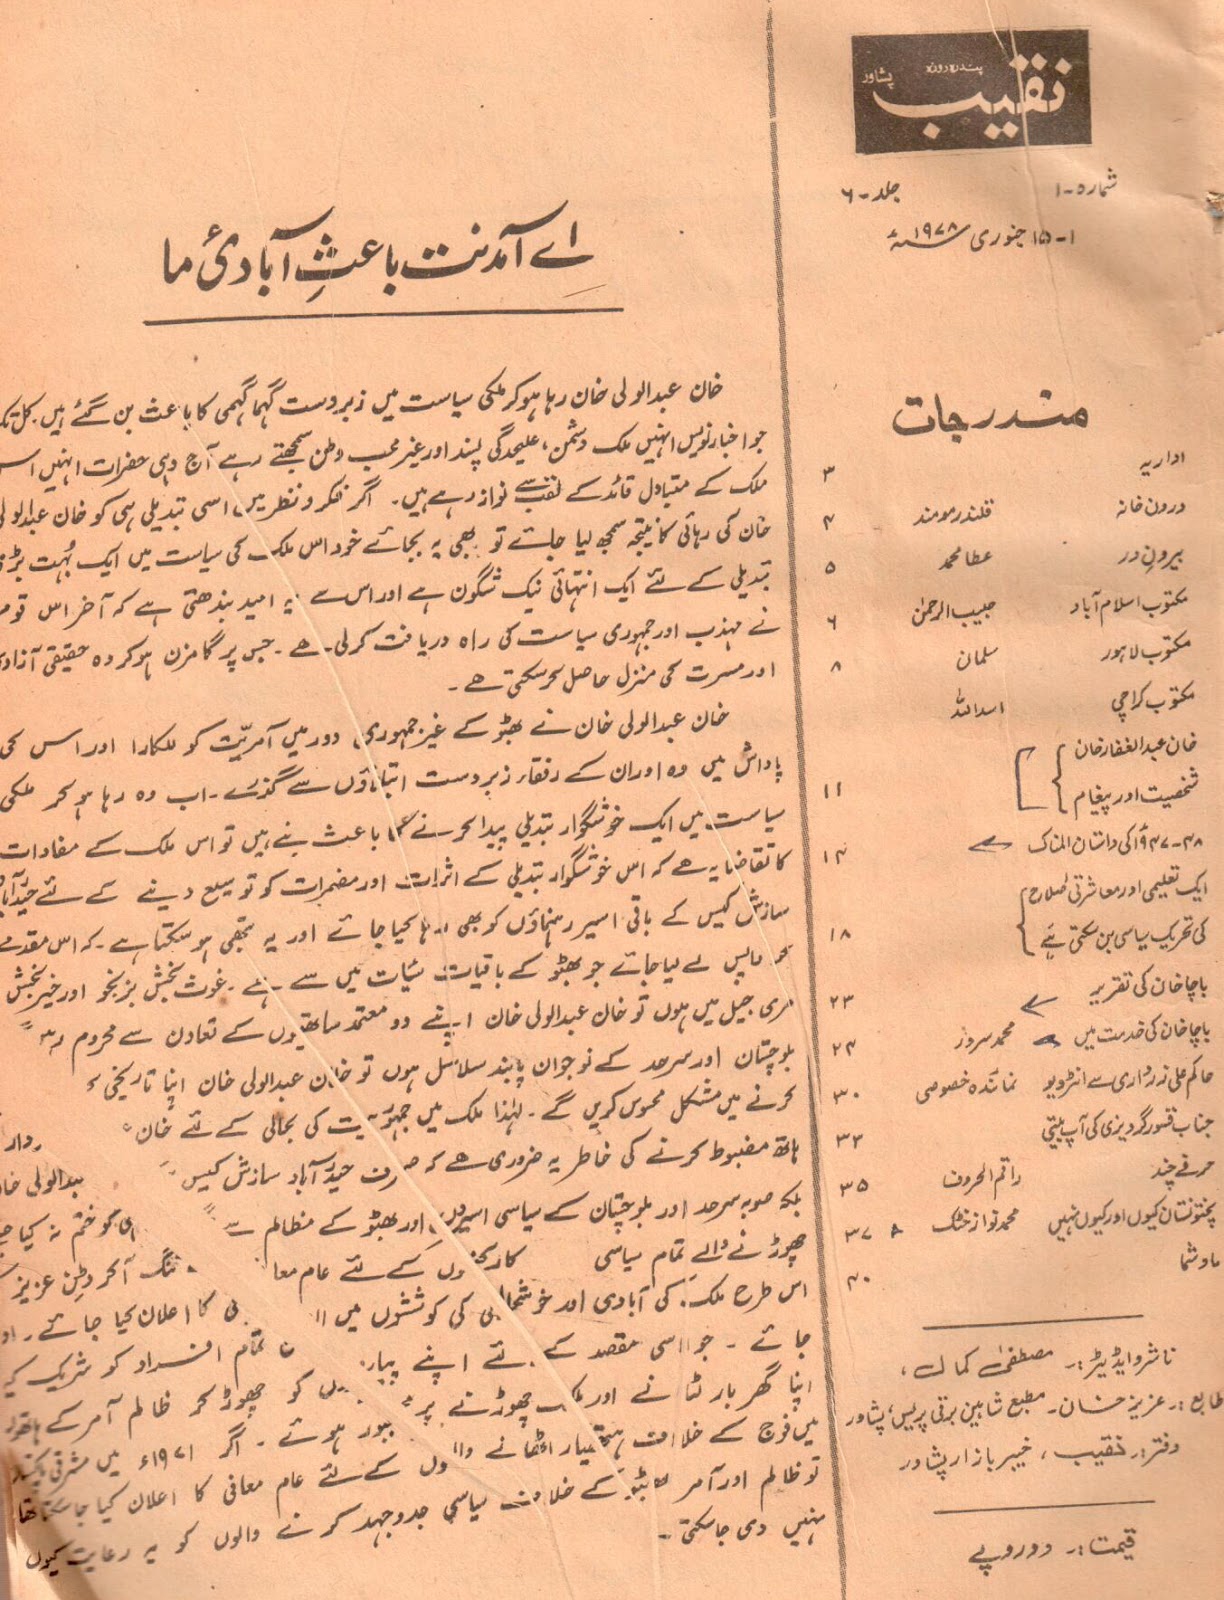 پندرہ روزہ
نقیب
پشاور
شمارہ-۱ جلد-۶
۱-۱۵ جنوری ۱۹۷۸ء
مندرجات
اداریہ ۳
درون خانہ قلندر مومند ۴
بیرونِ در عطا محمد ۵
مکتوب اسلام آباد حبیب الرحمٰن ۶
مکتوب لاہور سلمان ۸
مکتوب کراچی اسد اللہ
خان عبدالغفار خان
شخصیت اور پیغام ۱۱
۴۸-۱۹۴۷ء کی داستان المناک ۱۴
ایک تعلیمی اور معاشرتی اصلاح
کی تحریک سیاسی بن سکتی ہے ۱۸
باچا خان کی تقریر ۲۳
باچا خان کی خدمت میں محمد سرور ۲۴
حاکم علی زرداری سے انٹرویو نمائندہ خصوصی ۳۰
جناب قسور گردیزی کی آپ بیتی ۳۲
حرفے چند راقم الحروف ۳۵
پختونستان کیوں اور کیوں نہیں محمد نواز خٹک ۳۷
ماوشما ۴۰
ناشر و ایڈیٹر:۔ مصطفیٰ کمال،
طابع:۔ عزیز خان۔ مطبع شاہین برقی پریس، پشاور
دفتر:۔ نقیب، خیبر بازار پشاور
قیمت:۔ دو روپے
اے آمدنت باعثِ آبادیٔ ما
خان عبدالولی خان رہا ہو کر ملکی سیاست میں زبردست گہما گہمی کا باعث بن گئے ہیں۔ کل تک
جو اخبار نویس انہیں ملک دشمن، علیحدگی پسند اور غیر محب وطن سمجھتے رہے آج وہی حضرات انہیں اس
ملک کے متبادل قائد کے لقب سے نواز رہے ہیں۔ اگر فکر و نظر میں اسی تبدیلی ہی کو خان عبدالولی
خان کی رہائی کا نتیجہ سمجھ لیا جائے تو بھی یہ بجائے خود اس ملک کی سیاست میں ایک بہت بڑی
تبدیلی کے لئے ایک انتہائی نیک شگون ہے اور اس سے یہ امید بندھتی ہے کہ آخر اس قوم
نے مہذب اور جمہوری سیاست کی راہ دریافت کر لی ہے۔ جس پر گامزن ہو کر وہ حقیقی آزادی
اور مسرت کی منزل حاصل کر سکتی ہے۔
خان عبدالولی خان نے بھٹو کے غیر جمہوری دور میں آمریّت کو للکارا اور اس کی
پاداش میں وہ اور ان کے رفقاء زبردست ابتلاؤں سے گذرے۔ اب وہ رہا ہو کر ملکی
سیاست میں ایک خوشگوار تبدیلی پیدا کرنے کا باعث بنے ہیں تو اس ملک کے مفادات
کا تقاضا یہ ہے کہ اس خوشگوار تبدیلی کے اثرات اور مضمرات کو توسیع دینے کے لئے حیدرآباد
سازش کیس کے باقی اسیر رہنماؤں کو بھی رہا کیا جائے اور یہ تبھی ہو سکتا ہے۔ کہ اس مقدمے
کو واپس لے لیا جائے جو بھٹو کے باقیات سیئات میں سے ہے۔ غوث بخش بزنجو اور خیر بخش
مری جیل میں ہوں تو خان عبدالولی خان اپنے دو معتمد ساتھیوں کے تعاون سے محروم
بلوچستان اور سرحد کے نوجوان پابند سلاسل ہوں تو خان عبدالولی خان اپنا تاریخی
کرنے میں مشکل محسوس کریں گے۔ لہٰذا ملک میں جمہوریت کی بحالی کے لئے خان
ہاتھ مضبوط کرنے کی خاطر یہ ضروری ہے کہ صرف حیدرآباد سازش کیس
بلکہ صوبہ سرحد اور بلوچستان کے سیاسی اسیروں اور بھٹو کے مظالم سے
چھوڑنے والے تمام سیاسی کارکنوں کے لئے عام
اس طرح ملک کی آبادی اور خوشحالی کی کوششوں میں
جائے۔ جو اسی مقصد کے لئے اپنے
اپنا گھر بار لٹانے اور ملک چھوڑنے پر مجبور ہوئے۔ اگر ۱۹۷۱ء میں مشرقی
میں فوج کے خلاف ہتھیار اٹھانے والوں کے لئے عام معافی کا اعلان کیا جا سکتا تھا
تو ظالم اور آمر بھٹو کے خلاف سیاسی جدوجہد کرنے والوں کو یہ رعایت کیوں
نہیں دی جا سکتی۔